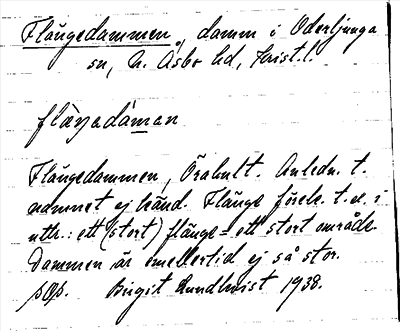 Flängedammen, damm i Oderljunga
sn, N. Åsbo hd, Krist.l.
flæŋadàman
Flängedammen, Örahult. Anledn. t.
namnet ej känd. Flänge förek. t.ex. i
uttr.: ett (stort) flänge = ett stort område.
Dammen är emellertid ej så stor.
Birgit Lundkvist 1938.